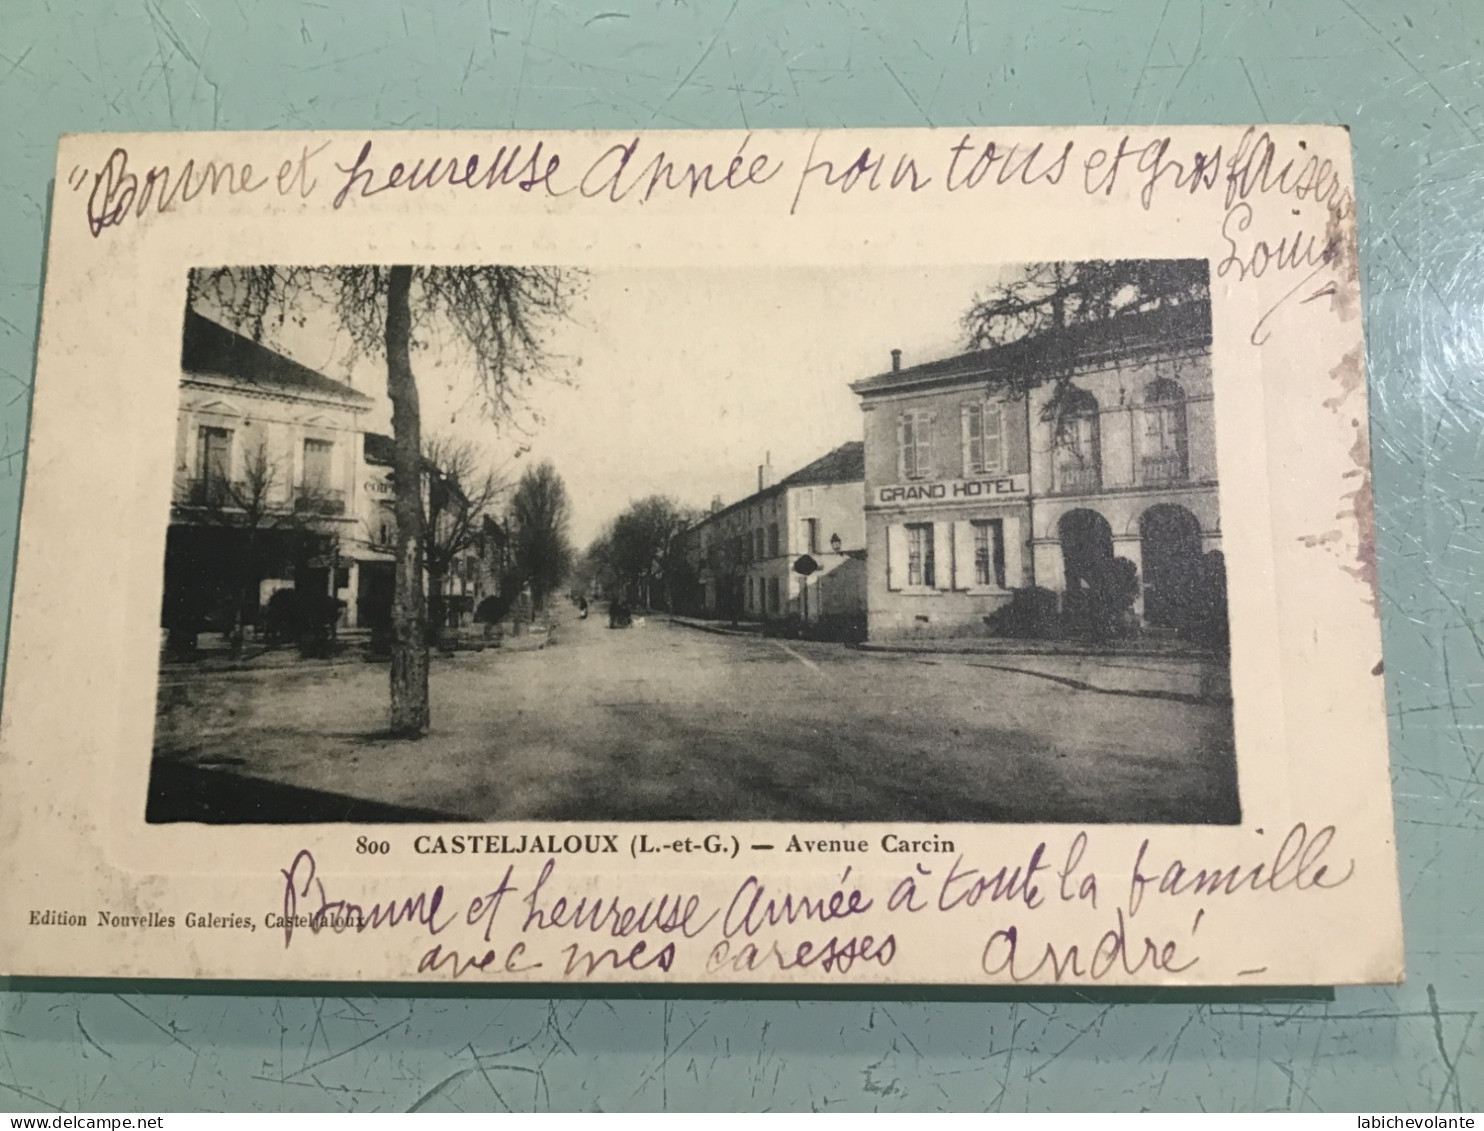 "Bonne et heureuse Année pour tous et gros baisers
Louis
GRAND HOTEL
800 CASTELJALOUX (L.-et-G.) — Avenue Carcin
Edition Nouvelles Galeries, Casteljaloux
Bonne et heureuse Année à toute la famille
avec mes caresses André
Delcampe.net
labichevolante